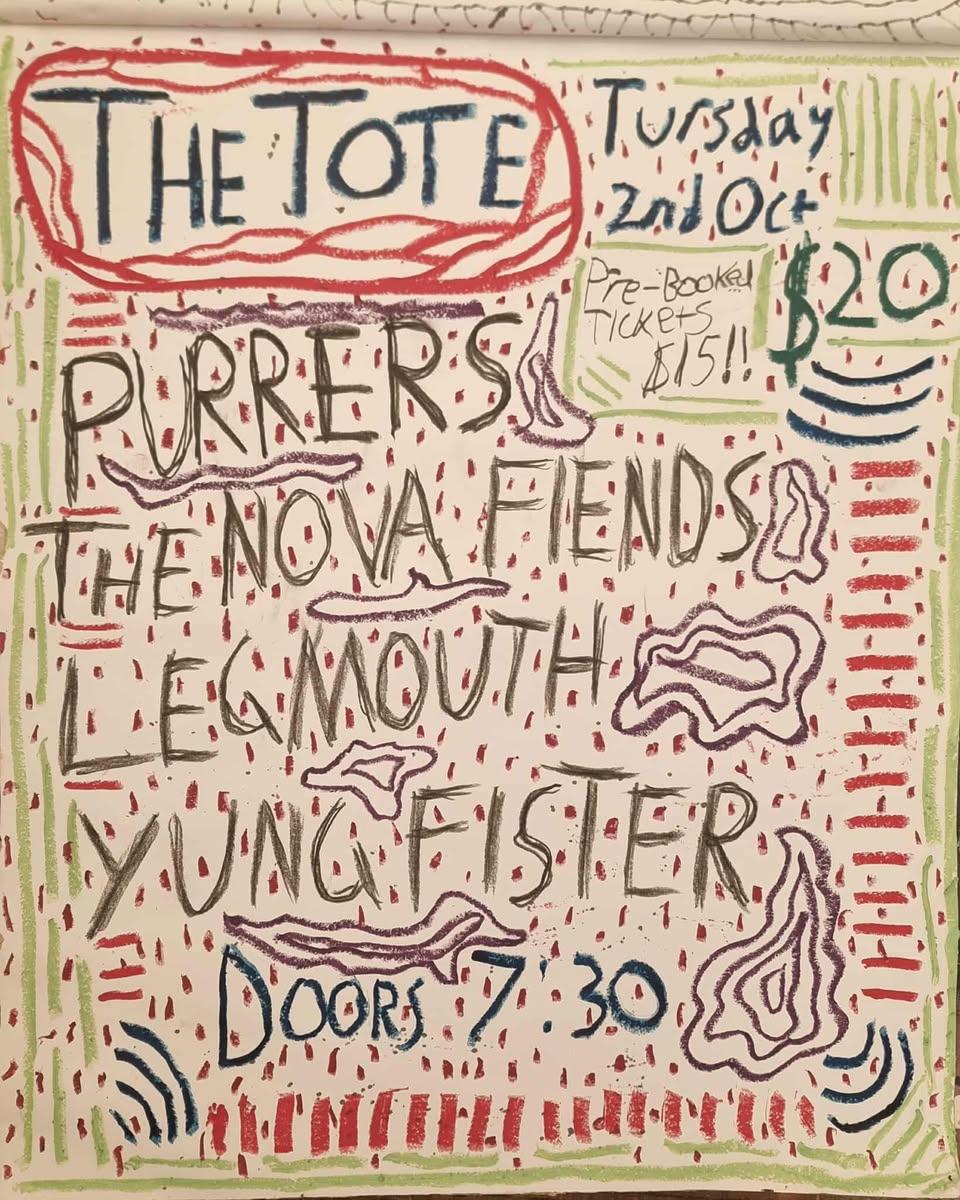 THE TOTE
Tursday
2nd Oct
Pre-Booked
TICKETS
$15!!
$20
PURRERS
THE NOVA FIENDS
LEGMOUTH
YUNG FISTER
DOORS 7:30